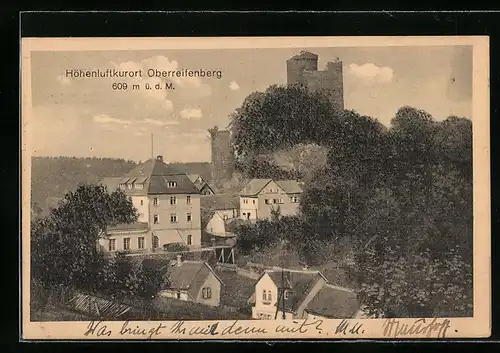 Höhenluftkurort Oberreifenberg
609 m ü. d. M.
Was bringt Ihr denn mit? M.